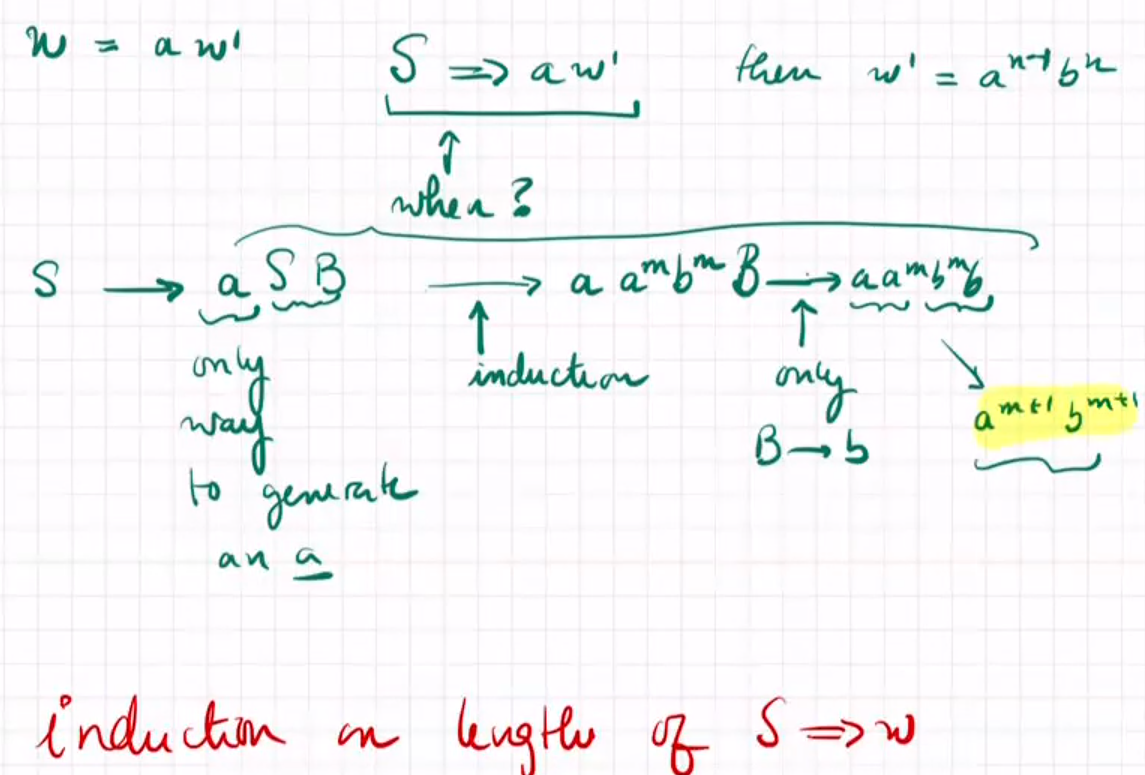 w = a w'
S ⇒ a w'
then w' = aⁿ⁻¹ bⁿ
when ?
S → a S B → a aᵐ bᵐ B → a aᵐ bᵐ b
only
way
to generate
an a
induction
only
B → b
aᵐ⁺¹ bᵐ⁺¹
induction on length of S ⇒ w